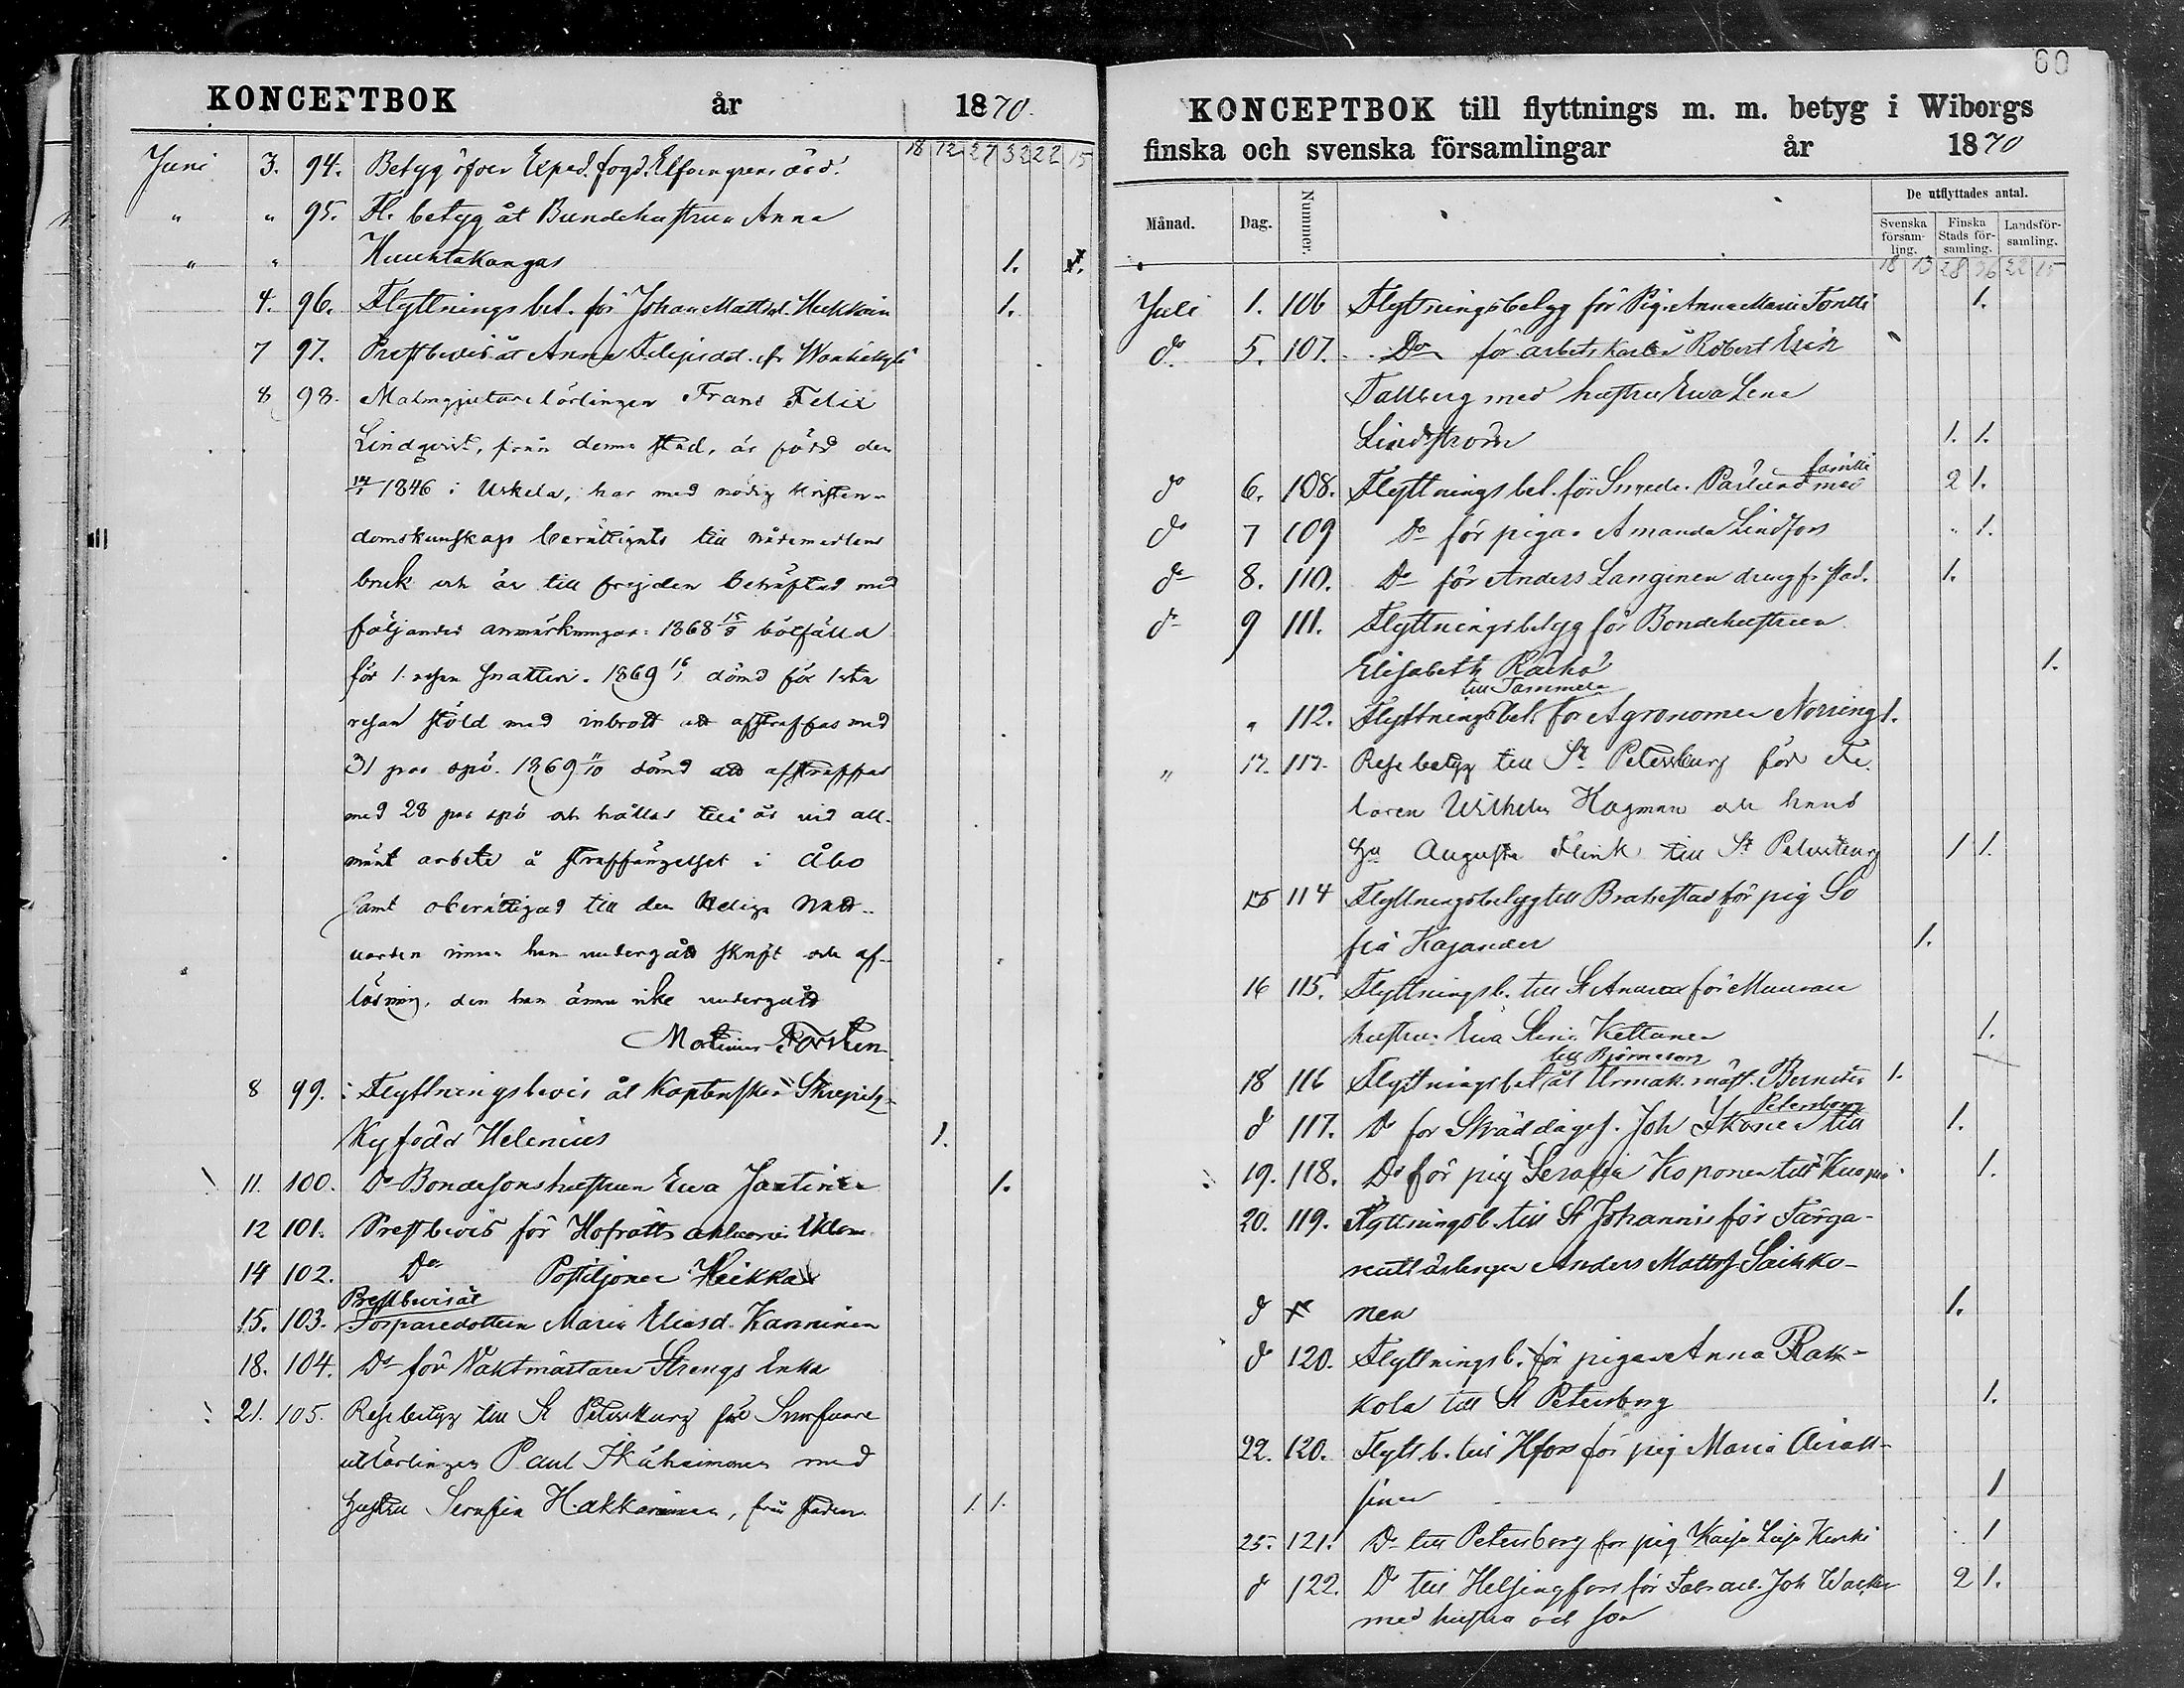 KONCEPTBOK år 1870.
18 12 27 32 22 15
Juni 3. 94. Betyg öfver Exped. fogd. Elfvengrens död.
" " 95. Fl. betyg åt Bondehustrun Anna
" " Huuhtakangas 1.
4. 96. Flyttnings bet. för Johan Mattsd. Heikkoin 1.
7 97. Prestbevis åt Anna Filipsdd. fr
8 98. Malmgjutare lärlingen Frans Felix
Lindqvist, från denna stad, är född den
1846 i Uskela, har med nödig kristen-
domskunskap berättigats till nådemedlens
bruk och är till frejden behäftad med
följande anmärkningar: 1868 15/8 bötfälld
för 1. resan snatteri. 1869 dömd för 1sta
resan stöld med inbrott att afstraffas med
31 par spö. 1869 11/10 dömd att afstraffas
med 28 par spö och hållas till år vid all-
mänt arbete å straffängelset i Åbo
samt oberättigad till den Heliga Natt-
varden innan han undergått skrift och af-
lösning, den han ännu icke undergått
Mortimer Forstén
8 99. Flyttningsbevis åt Kaptenskan Skrepitz-
Ky född Helenius 1.
11. 100. Do Bondesonshustrun Ewa Jantinen 1.
12 101. Prestbevis för Hofrätts
14 102. Do Postiljonen Heikka
Prestbevis åt
15. 103. Torparedottren Maria Eliasd. Kanninen
18. 104. Do för Vaktmästaren Strengs Enka
21. 105. Resebetyg till St Petersburg för
utlärlingen Paul Ikäheimonen med
hustru Serafia Hakkarainen, från staden 1. 1.
60
KONCEPTBOK till flyttnings m. m. betyg i Wiborgs
finska och svenska församlingar år 1870
Månad. Dag. Nummer. De utflyttades antal.
Svenska församling. Finska Stads församling. Landsförsamling.
18 13 28 36 22 15
Juli 1. 106 Flyttningsbetyg för Pig. Anna Maria Tontti 1.
do 5. 107. Do för arbetskarlen Robert Erik
Tallberg med hustru Ewa Lena
Lindström 1. 1.
familie
do 6. 108. Flyttnings bet. för Smeds. Parlund med 2 1.
do 7 109 Do för pigan Amanda Lindfors " 1.
do 8. 110. Do för Anders Langinen dreng fr stad. 1.
do 9 111. Flyttningsbetyg för Bondehustrun
Elisabeth Räihä 1.
till Tammela
" 112. Flyttningsbet. för Agronomen Norring 1.
" 12. 113. Resebetyg till St Petersburg för
laren Wilhelm Hagman och hans
Hu Augusta Flink till St Petersburg 1 1.
15 114 Flyttningsbetyg till Brahestad för pig So
fia Kajander 1.
16 115. Flyttningsb. till St Andrea för Muurare
hustrun Ewa Stina Kettunen 1.
till Björneborg
18 116 Flyttningsbet åt Urmak. mäst. 1.
Petersborg
d 117. Do for Skräddarges. Joh Ikonen till 1.
19. 118. Do för pig Serafia Koponen till Kuopio 1.
20. 119. Flyttningsb. till St Johannis för Färga-
reutlärlingen Anders Mattss. Saikko-
d nen 1.
d 120. Flyttningsb. för pigan Anna Rak-
kola till St Petersborg 1.
22. 120. Flytt. b. till Hfors för pig Maria Airak-
sinen 1
25. 121. Do till Petersborg for pig Kaisa Liisa Kurki 1
d 122. Do till Helsingfors för Joh
med hustru och son 2 1.